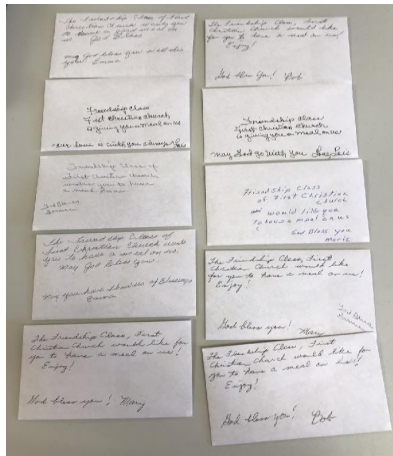 The Friendship Class of First
Christian Church
God Bless
may God bless you
Emma
Friendship Class
First Christian Church
is giving you a meal on us
our love is with you always Lois
Friendship Class of
First Christian Church
you to have
a meal
God Bless
The Friendship Class of
First Christian Church
you to have a meal on us.
May God Bless You.
May you have showers of Blessings
Emma
The Friendship Class, First
Christian Church would like for
you to have a meal on us!
Enjoy!
God bless you! Mary
The Friendship Class, First
Christian Church would like
for you to have a meal on us!
Enjoy!
God bless you! Bob
Friendship Class
First Christian Church
is giving you a meal on us
may God go with you Love Lois
Friendship Class
of First Christian
Church
would like you
to have a meal on us
God Bless you
The Friendship Class, First
Christian Church would like
for you to have a meal on us!
Enjoy!
God bless you! Mary
The Friendship Class, First
Christian Church would like for
you to have a meal on us!
Enjoy!
God bless you! Bob